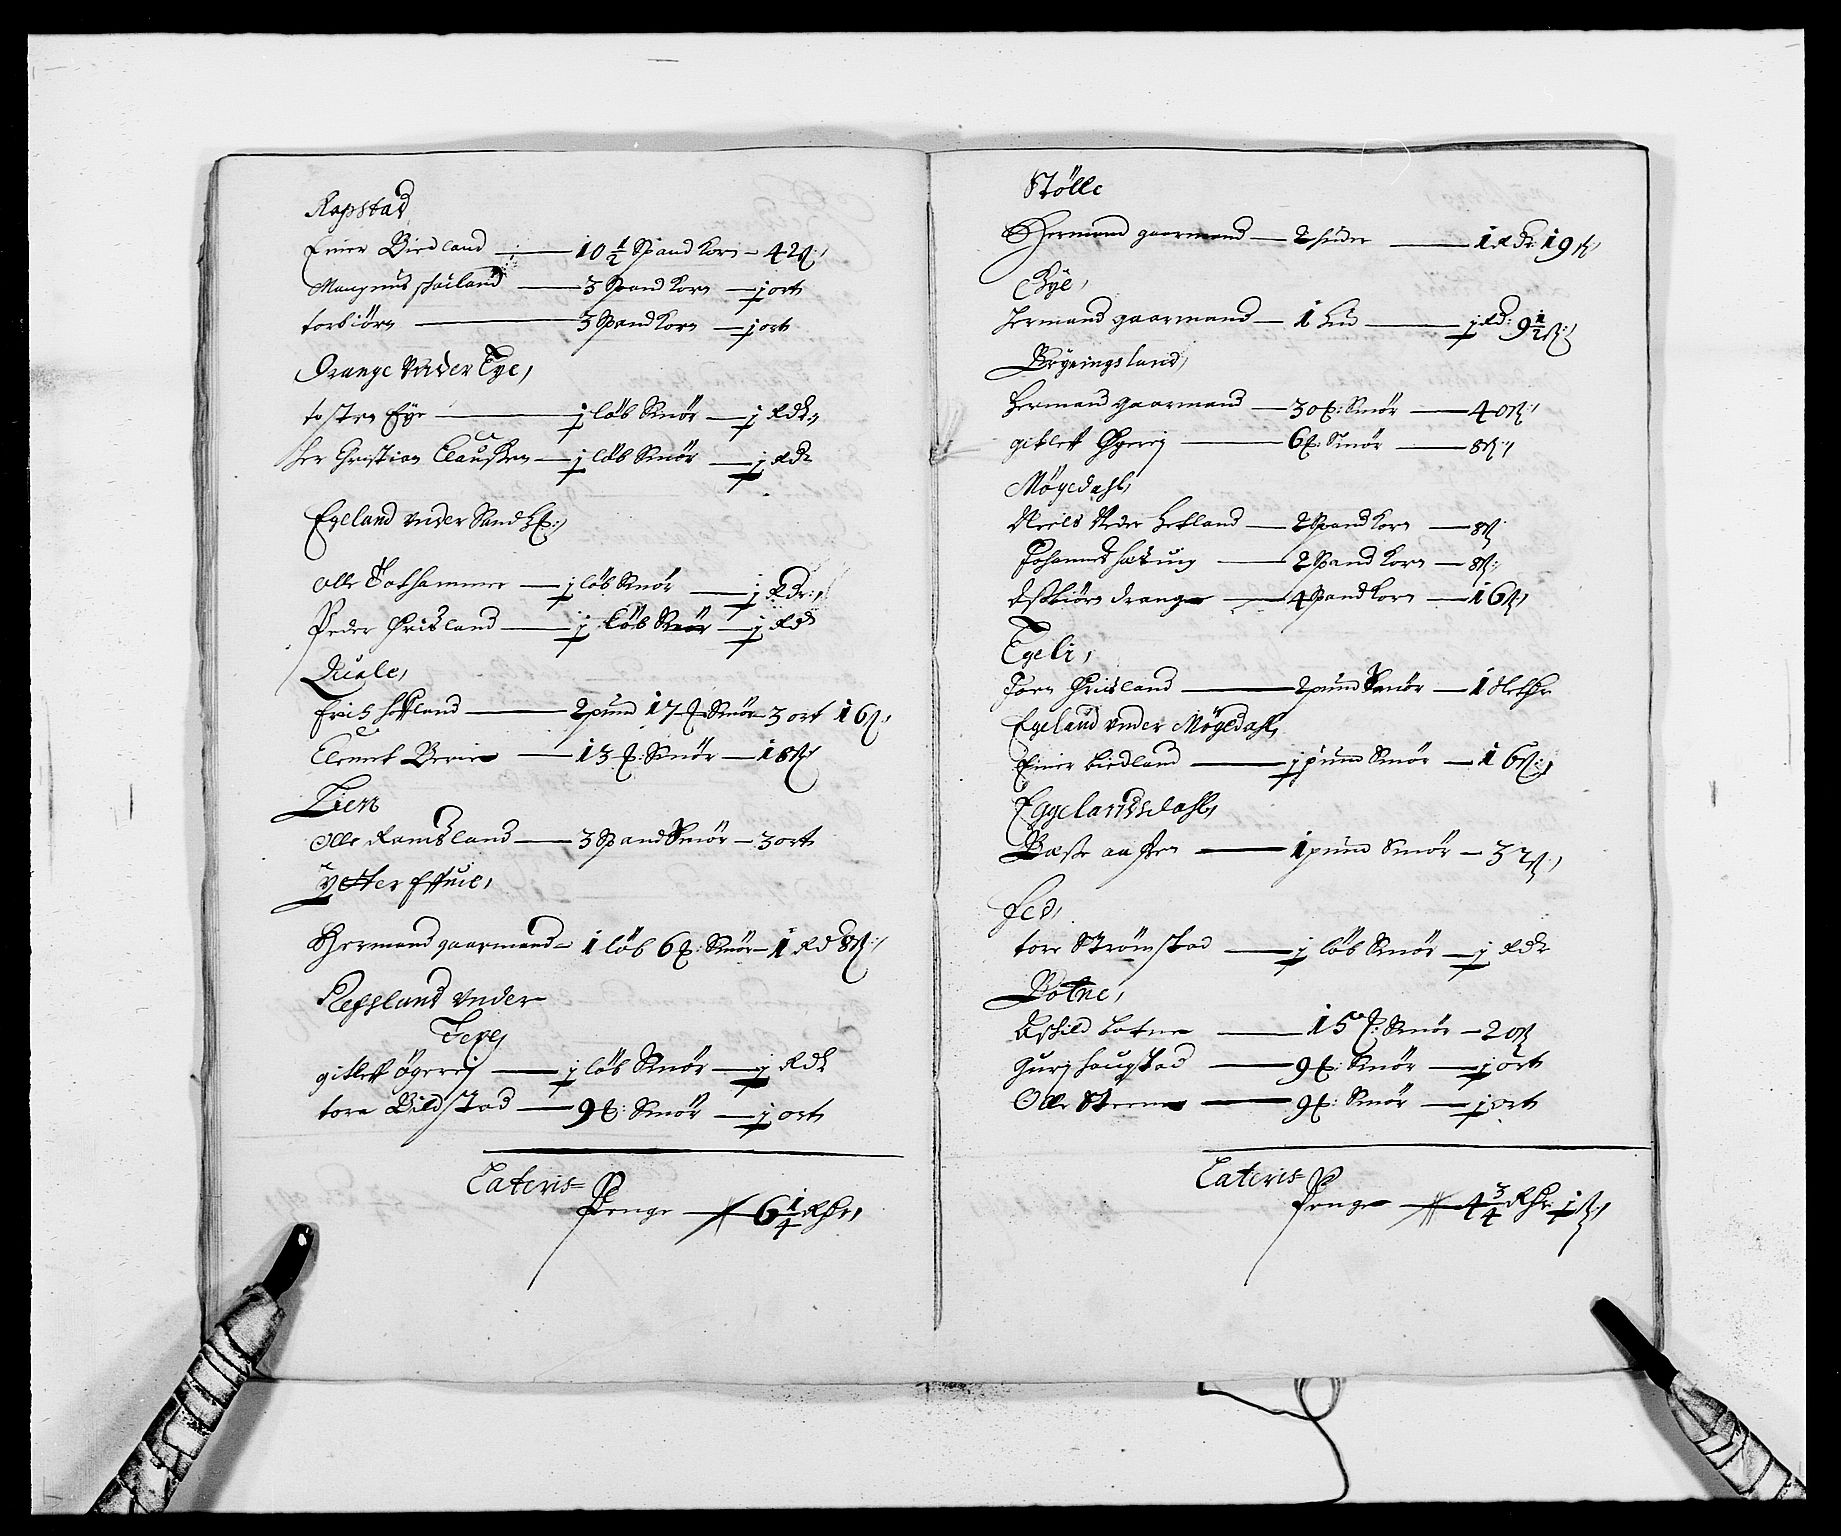 Rapstad
Einer Birkeland — 10 1/2 Spand Korn — 42 ß:/
Mangnus schailand — 3 Spand Korn — j ort
torbiørn — 3 Spand Korn — j ort
Drange Vnder Eye,
tosten Eye — j løb Smør — j Rdr:
Her Christian Claussen — j løb Smør — j Rdr
Egeland vnder Sand
Olle Tothammer — j løb Smør — j Rdr:/
Peder Frisland — j løb Smør — j Rdr
Quale,
Erich hofland — 2 pund 17 ℔ Smør 3 ort 16 ß:/
Clemet — 13 ℔: Smør — 18 ß
Lien
Olle Ramsland — 3 Spand Smør — 3 ort
Ytter
Hermand gaarmand — 1 løb 6 ℔: Smør — 1 Rd 8 ß:/
Refsland vnder
gitleff Øgerej — j løb Smør — j Rdr
tore Bildstad — 9 ℔: Smør — j ort
Lateris=
Penge — 6 1/4 Rdr,
Stølle
Hermand gaarmand — 2 huder — 1 Rdr: 19 ß/
Bye,
Hermand gaarmand — 1 hud — j Rd: 9 1/2 ß:/
Brÿningsland,
Hermand gaarmand — 30 ℔: Smør — 40 ß:/
gitleff Øgerej — 6 ℔: Smør — 8 ß:/
Møgedahl,
Neels Neder Hetland — 2 Spand Korn — 8 ß
Johannes — 2 Spand Korn — 8 ß:,
Assbiørn drange — 4 Spand Korn — 16 ß,
Egeli,
Jørn Frisland — 2 pund Smør — 1 Slethr
Egeland vnder Møgedahl,
Einer birkeland — j pund Smør — 16 ß:/
Eggelandsdahl,
Basse aasen — 1 pund Smør — 32 ß:/
Fed,
tore Strømstad — j løb Smør — j Rdr
Botne,
Aschild botne — 15 ℔: Smør — 20 ß
Gurj haugstad — 9 ℔: Smør — j ort
Olle Steene — 9 ℔: Smør — j ort
Lateris=
Penge — 4 3/4 Rdr: j ß:/